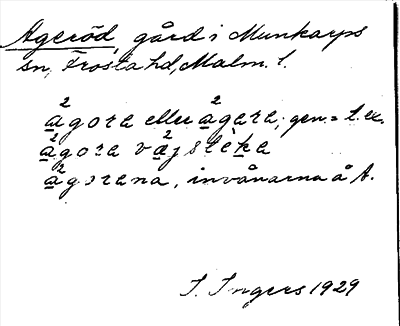 Ageröd, gård i Munkarps
sn, Frosta hd, Malm. l.
a²gora eller a²gara, gen. = t. ex.
a²gora va²jslèka
a²gorana, invånarna å A.
I. Ingers 1929